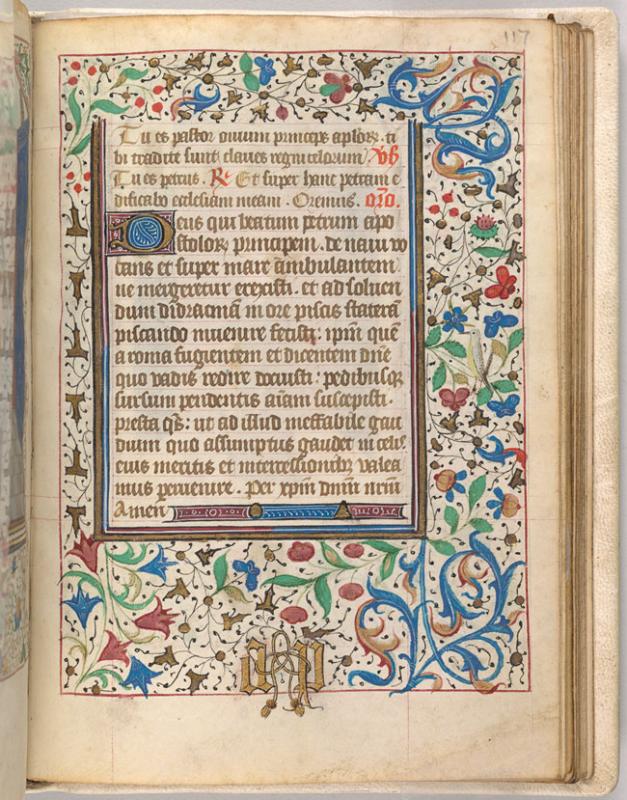 117
Tu es pastor ouium princeps aplorꝝ. ti
bi tradite sunt claues regni celorum. Vs̄
Tu es petrus. R̄ Et super hanc petram e
dificabo ecclesiam meam. Oremus. oꝛo.
Deus qui beatum petrum apo
stolorꝝ principem. de naui vo
cans et super mare ambulantem
ne mergeretur erexisti. et ad soluen
dum didracmā in ore piscis staterā
piscando inuenire fecisti: ipm̄ quē
a roma fugientem et dicentem dn̄e
quo vadis redire docuisti: pedibusqꝫ
sursum pendentis aīam suscepisti.
presta qs̄: ut ad illud ineffabile gau
dium quo assumptus gaudet in celis.
eius meritis et intercessionibꝫ valea
mus peruenire. Per xp̄m dn̄m nr̄m
Amen